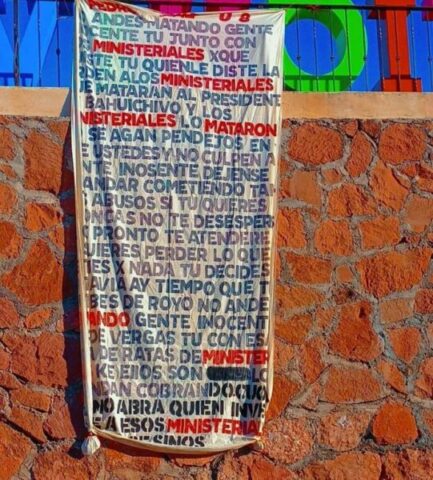 ANDES MATANDO GENTE
CENTE TU JUNTO CON
MINISTERIALES XQUE
STE TU QUIENLE DISTE LA
RDEN ALOS MINISTERIALES
E MATARAN AL PRESIDENTE
BAHUICHIVO Y LOS
NISTERIALES LO MATARON
SE AGAN PENDEJOS EN
USTEDES Y NO CULPEN A
TE INOSENTE DEJENSE
ANDAR COMETIENDO TA
ABUSOS SI TU QUIERES
ONCAS NO TE DESESPER
PRONTO TE ATENDERE
UIERES PERDER LO QUE
ES X NADA TU DECIDES
AVIA AY TIEMPO QUE T
BES DE ROYO NO ANDE
ANDO GENTE INOCENT
DE VERGAS TU CON ES
DE RATAS DE MINISTER
KEJIOS SON LO
DAN COBRANDO CUO
NO ABRA QUIEN INVE
A ESOS MINISTERIAL
SINOS